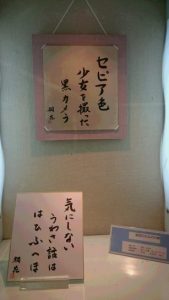 セピア色
少女を撮った
黒カメラ
気にしない
うわさ話は
はひふへほ